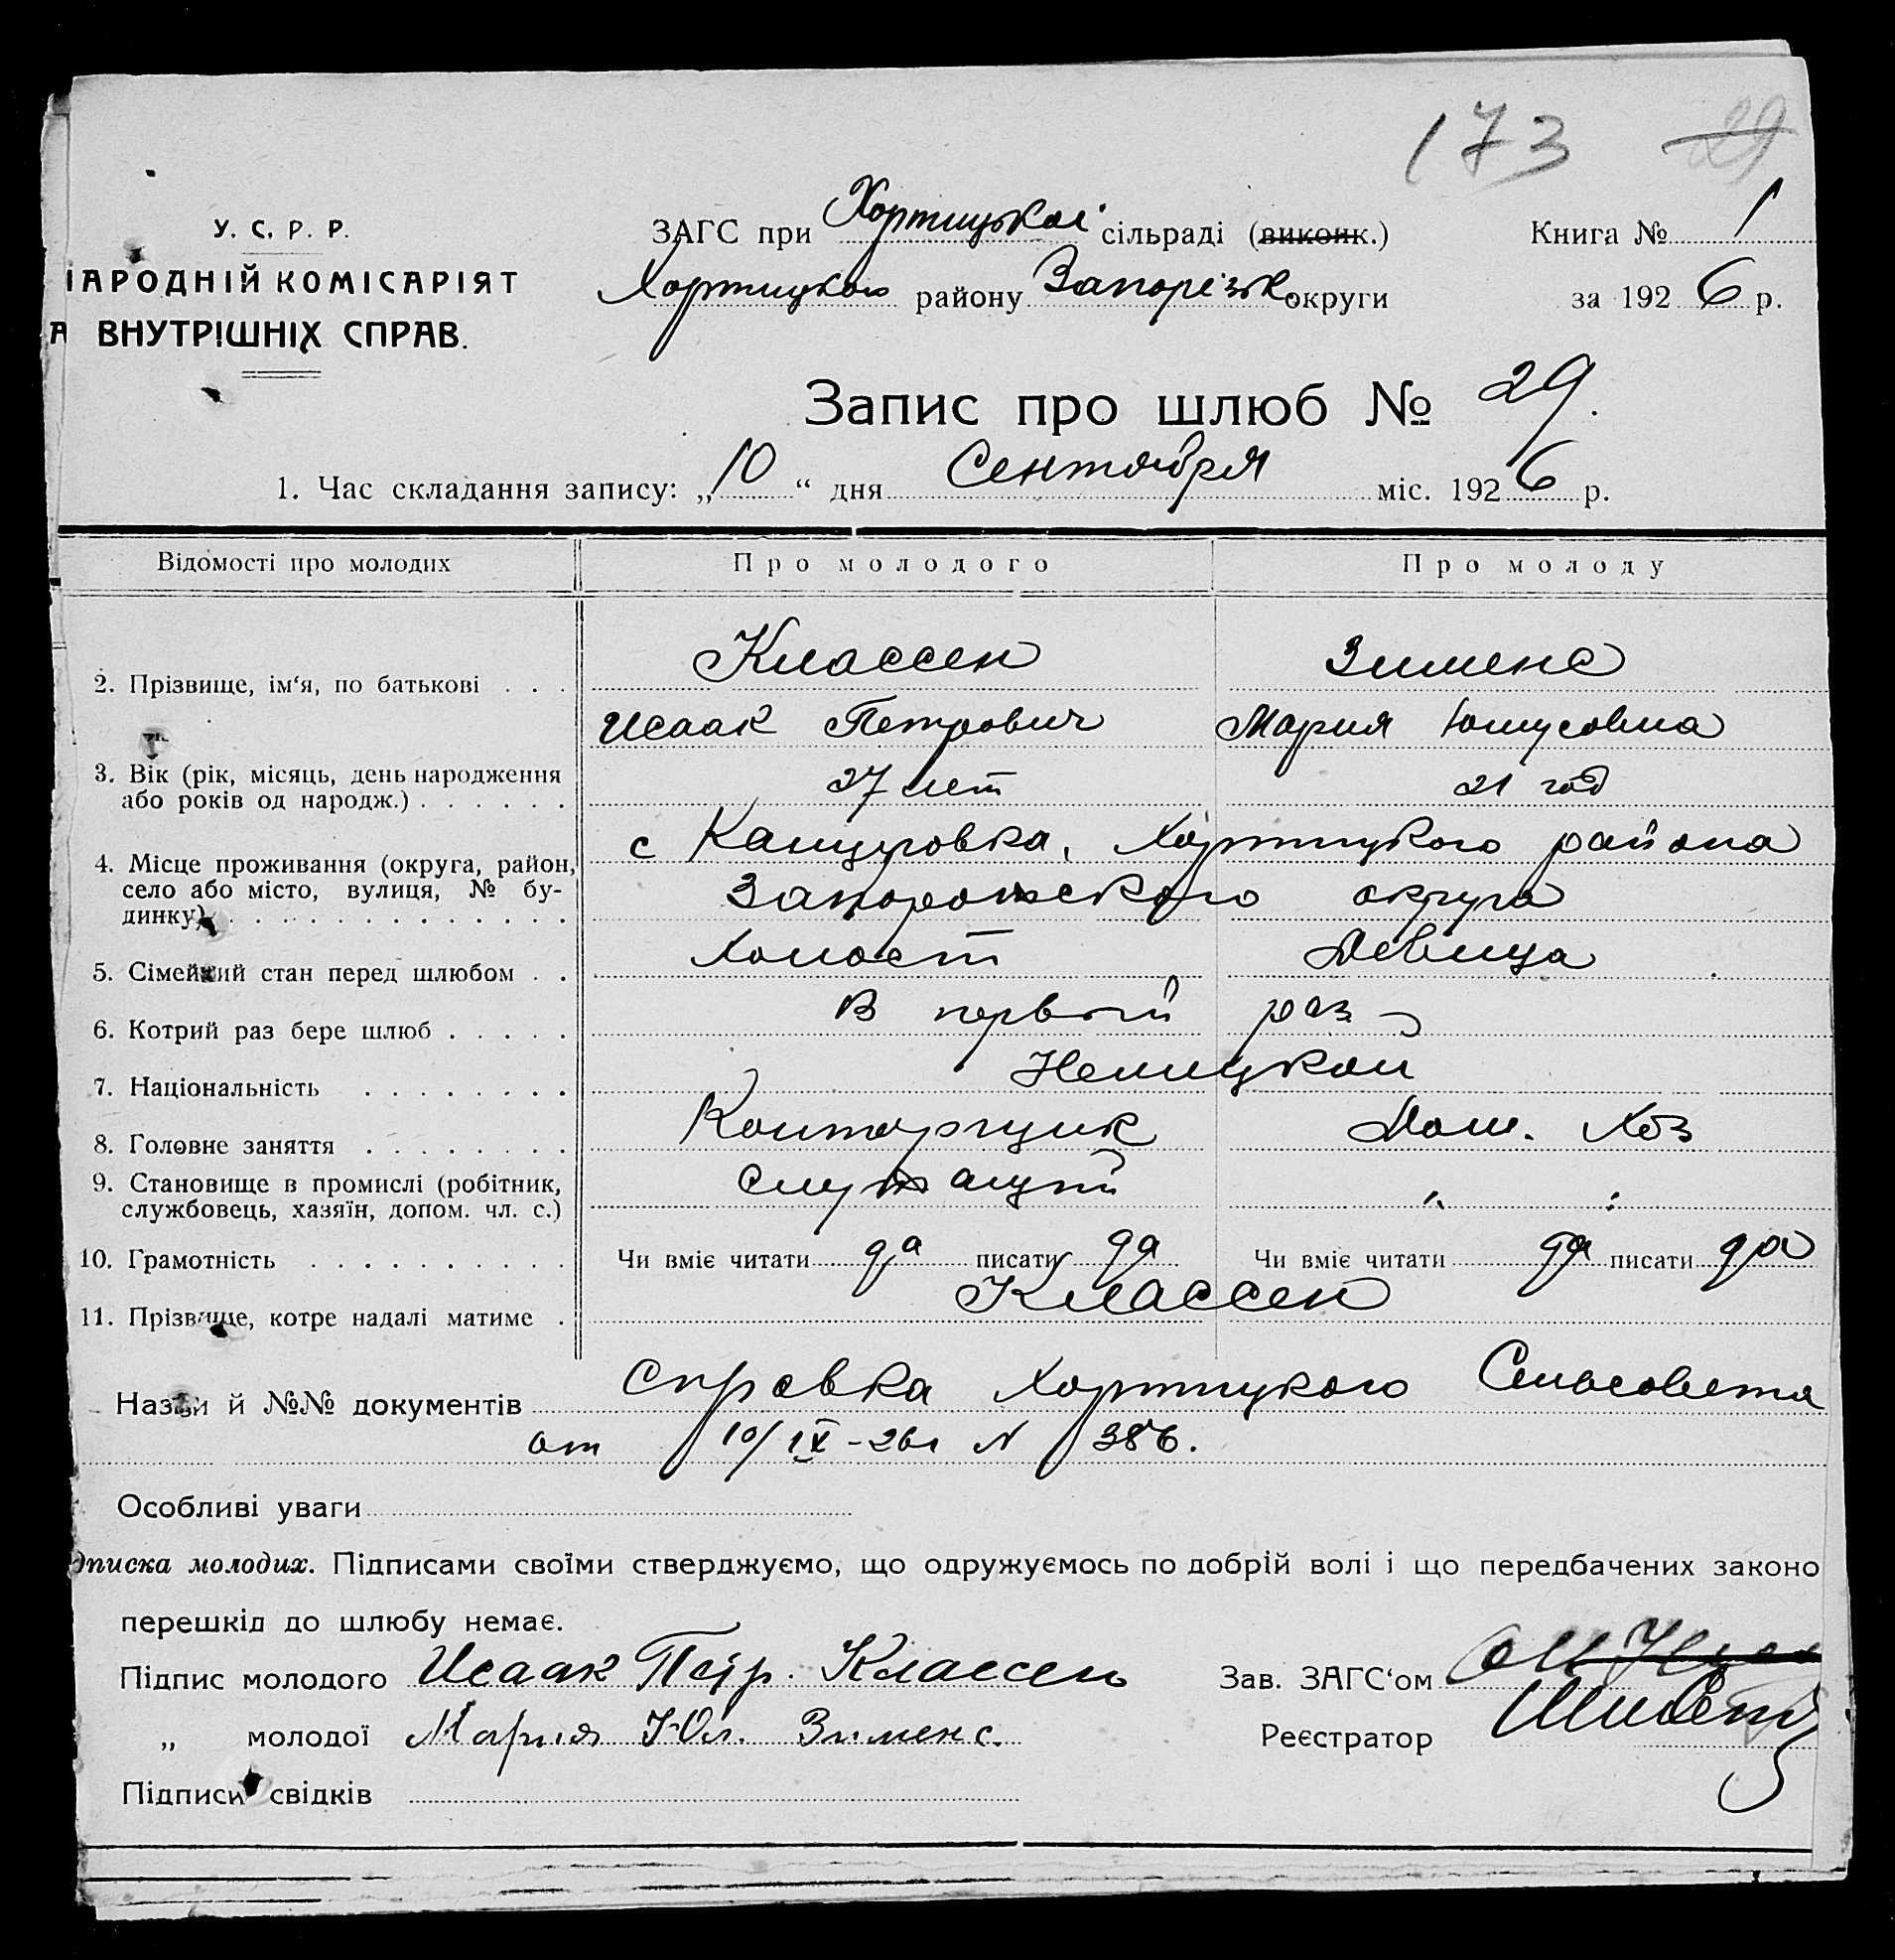 173 29
У. С. Р. Р.
ЗАГС при Хортицькой сільраді (виконк.) Книга № 1
НАРОДНІЙ КОМІСАРІЯТ
Хортицкого району Запорізьк округи за 1926 р.
ВНУТРІШНІХ СПРАВ.
Запис про шлюб № 29.
1. Час складання запису: „10“ дня Сентября міс. 1926 р.
Відомості про молодих Про молодого Про молоду
2. Прізвище, ім'я, по батькові . . . Классен Зименс
Исаак Петрович Мария Юлусовна
3. Вік (рік, місяць, день народження
або років од народж.) . . . . . . 27 лет 21 год
4. Місце проживання (округа, район, с Канцеровка, Хортицкого района
село або місто, вулиця, № бу-
динку) . . . . . . . . . . . . Запорожского округа
5. Сімейний стан перед шлюбом . . Холост Девица
6. Котрий раз бере шлюб . . . . . В первый раз
7. Національність . . . . . . . . Немецкой
8. Головне заняття . . . . . . . . Конторщик Дом. Хоз
9. Становище в промислі (робітник,
службовець, хазяїн, допом. чл. с.) Служащий " "
10. Грамотність . . . . . . . . . . Чи вміє читати да писати да Чи вміє читати да писати да
11. Прізвище, котре надалі матиме . Классен
Назви й №№ документів Справка Хортицкого Сельсовета
от 10/IX-26г N 386.
Особливі уваги
дписка молодих. Підписами своїми стверджуємо, що одружуємось по добрій волі і що передбачених законо
перешкід до шлюбу немає.
Підпис молодого Исаак Петр. Классен Зав. ЗАГС'ом
„ молодої Мария Юл. Зименс. Реєстратор
Підписи свідків